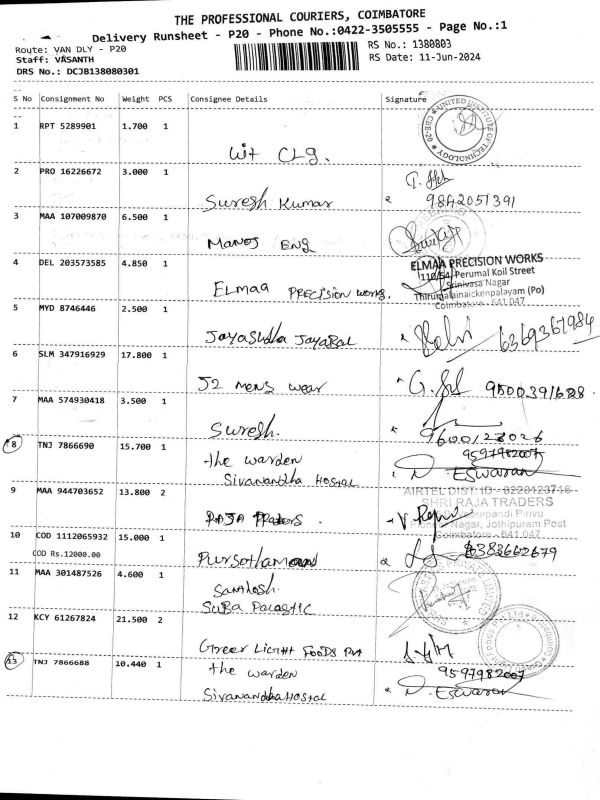 THE PROFESSIONAL COURIERS, COIMBATORE
Delivery Runsheet - P20 - Phone No.:0422-3505555 - Page No.:1
Route: VAN DLY - P20
RS No.: 1380803
Staff: VASANTH
RS Date: 11-Jun-2024
DRS No.: DCJB138080301
S No Consignment No Weight PCS Consignee Details Signature
1 RPT 5289901 1.700 1
UNITED INSTITUTE OF TECHNOLOGY * CBE-20 *
Wit Clg.
2 PRO 16226672 3.000 1
Suresh Kumar 9842051391
3 MAA 107009870 6.500 1
Manoj ENG
4 DEL 203573585 4.850 1
ELMAA PRECISION WORKS
110/54, Perumal Koil Street
Srinivasa Nagar
Thirumalainaickenpalayam (Po)
Coimbatore - 641 047
ELmaa PRECISION WORKS.
5 MYD 8746446 2.500 1
Jayasudha Jayabal Selvi 6369361984
6 SLM 347916929 17.800 1
J2 mens wear
7 MAA 574930418 3.500 1
Suresh. 9600123026
8 TNJ 7866690 15.700 1
the warden 9597982007
Sivanandha Hostal D. Eswaran
9 MAA 944703652 13.800 2
AIRTEL DIST. ID - 6220123716
SHRI RAJA TRADERS
Nagar, Jothipuram Post
Coimbatore - 641 047
RAJA Traders. V. Rajni
10 COD 1112065932 15.000 1
COD Rs.12000.00
Pursothaman 8383662679
11 MAA 301487526 4.600 1
Santhosh
SUBA Palastic
12 KCY 61267824 21.500 2
Green Light Foods Pvt
13 TNJ 7866688 10.440 1
the warden 9597982007
Sivanandha Hostal D. Eswaran